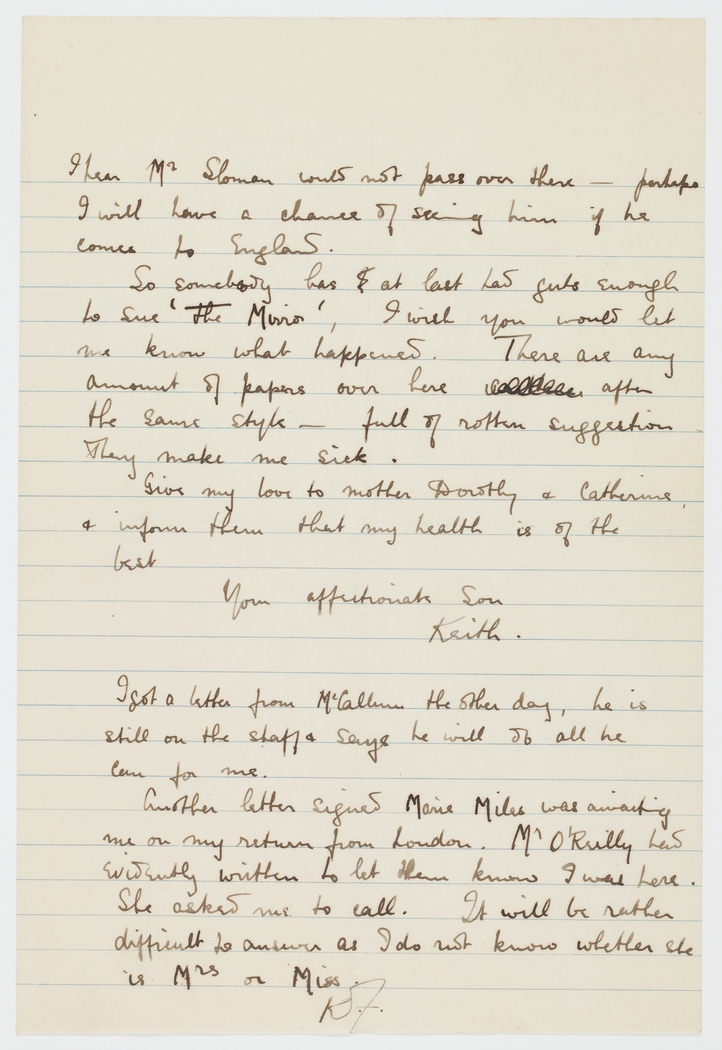 I hear Mr Sloman would not pass over there — perhaps
I will have a chance of seeing him if he
comes to England.
So somebody has at last had guts enough
to sue 'the Mirror', I wish you would let
me know what happened. There are any
amount of papers over here after
the same style — full of rotten suggestion
They make me sick.
Give my love to mother Dorothy & Catherine,
& inform them that my health is of the
best
Your affectionate Son
Keith.
I got a letter from McCallum the other day, he is
still on the staff & says he will do all he
can for me.
Another letter signed Marie Miles was awaiting
me on my return from London. Mr O'Reilly had
evidently written to let them know I was here.
She asked me to call. It will be rather
difficult to answer as I do not know whether she
is Mrs or Miss.